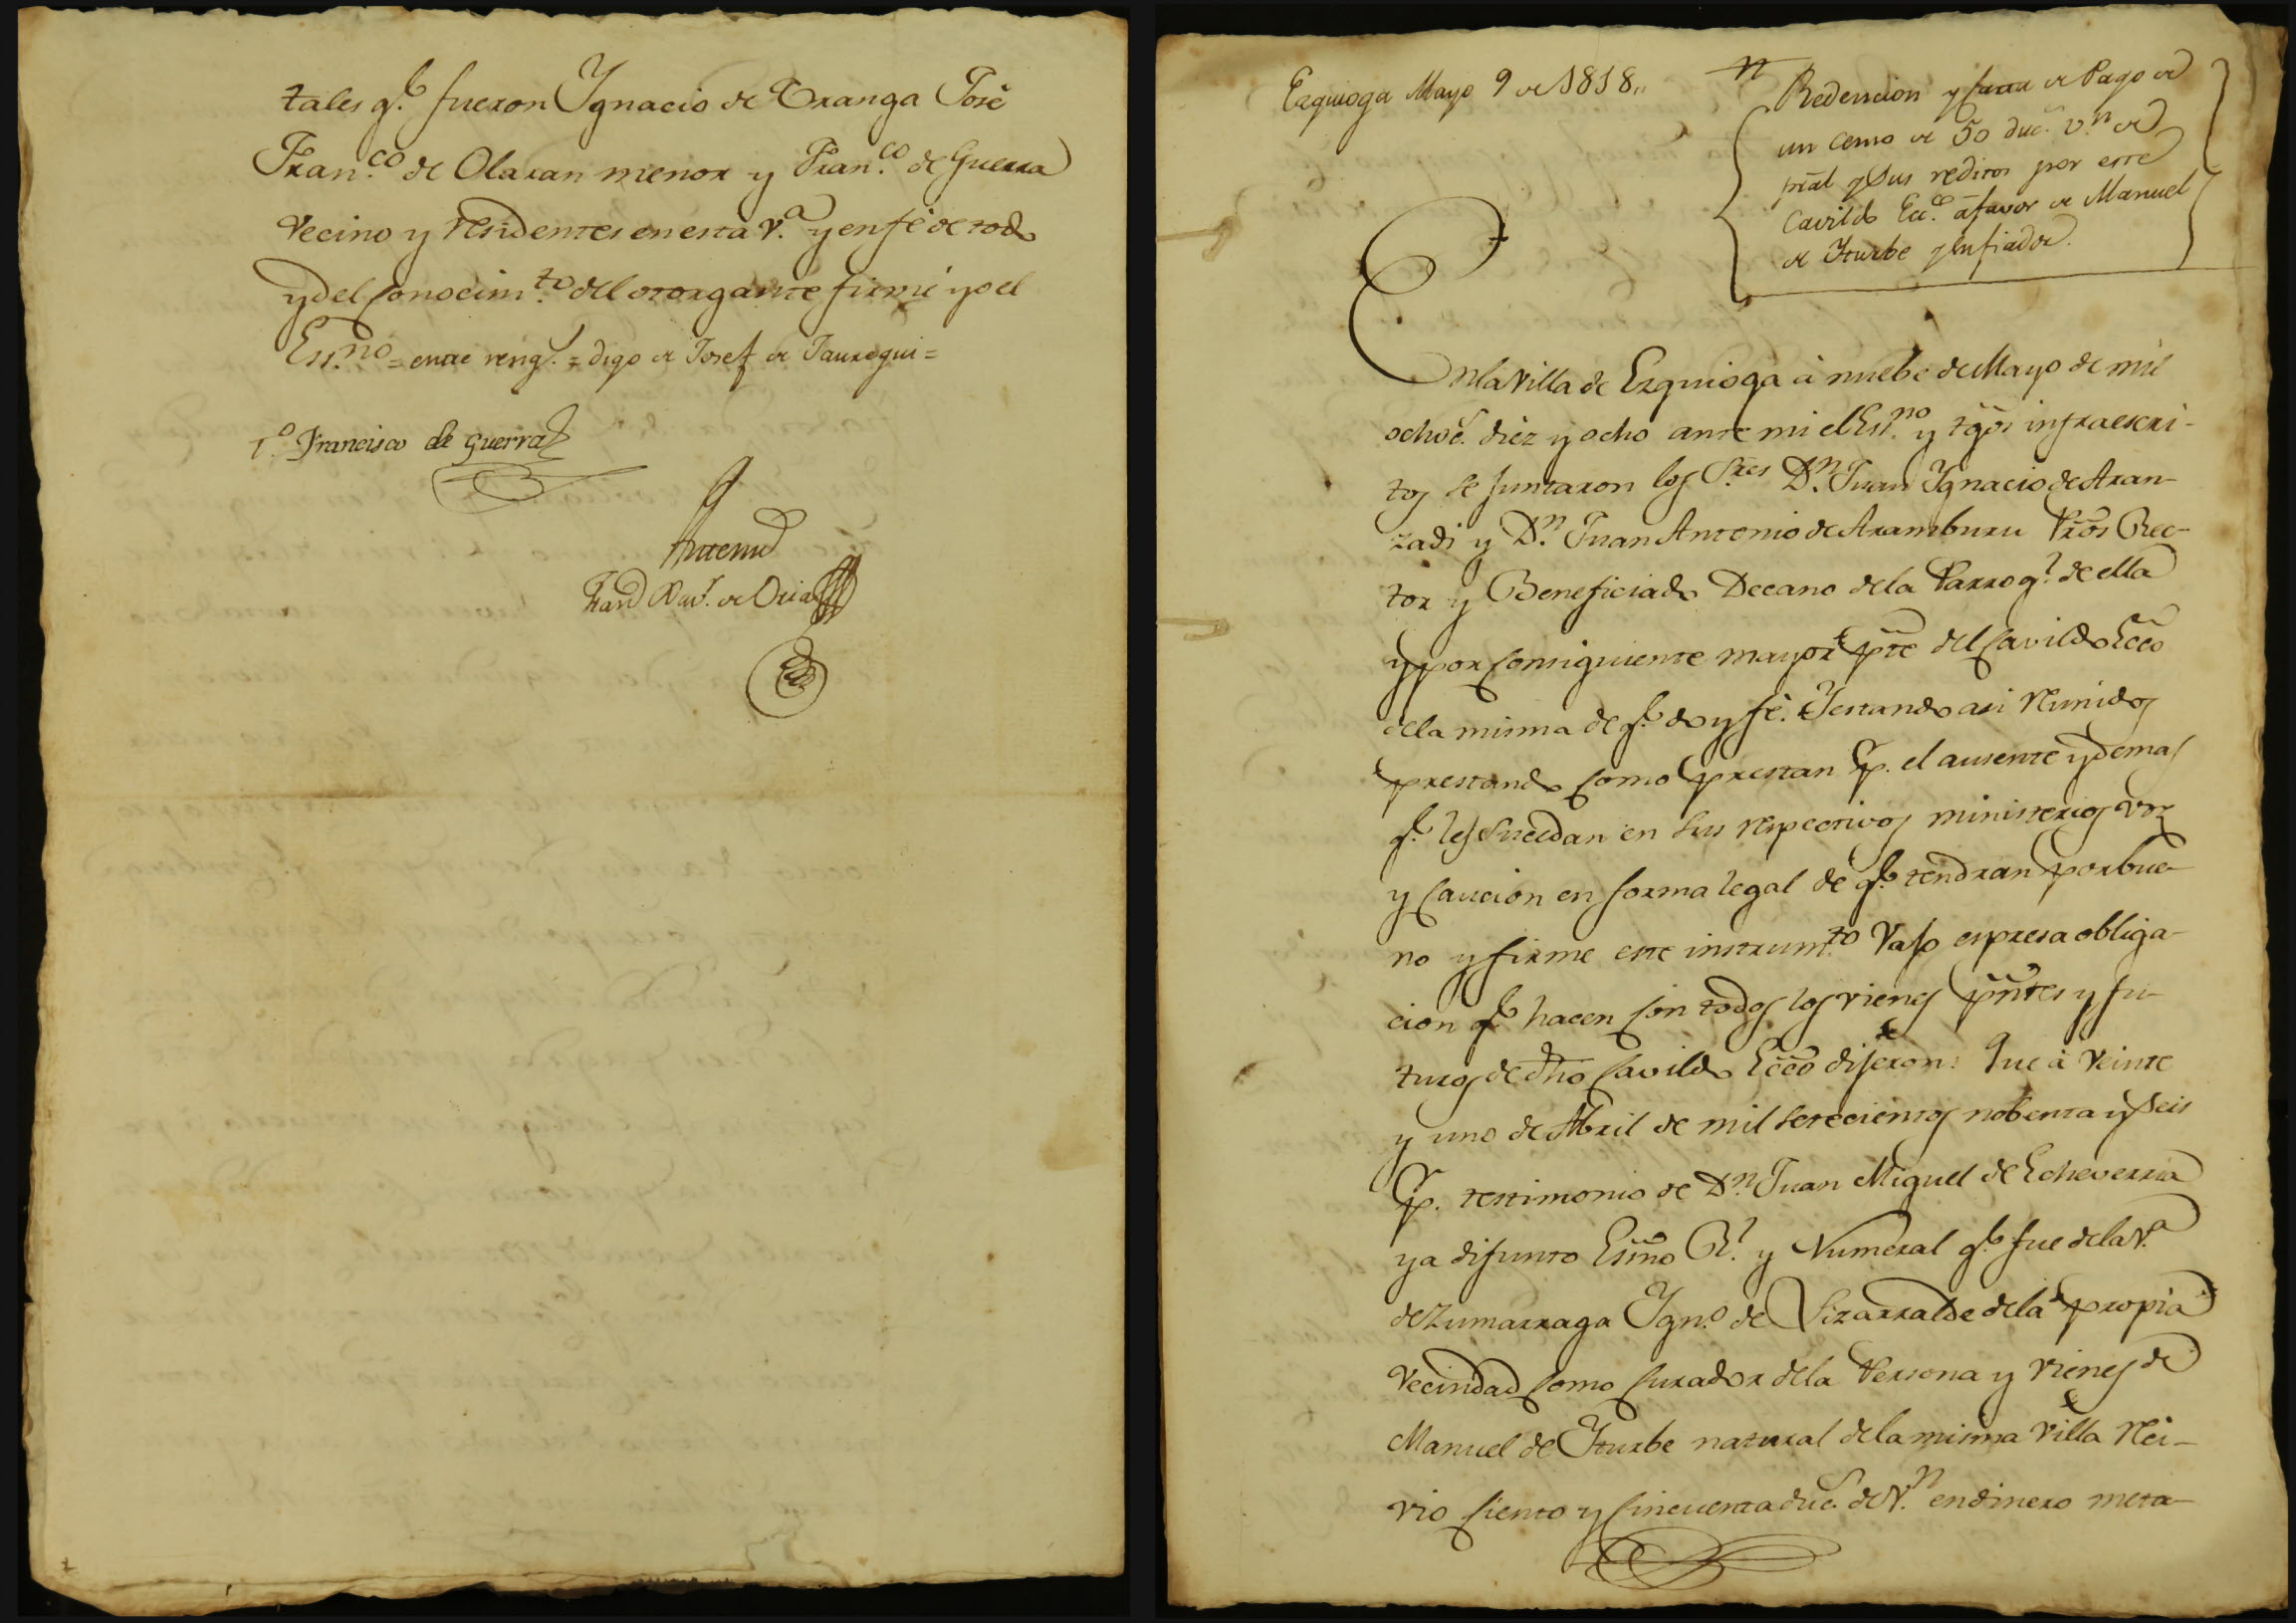 tales q.e fueron Ygnacio de Oranga José
Fran.co de Olaran menor y Fran.co de Guerra
vecino y residentes en esta V.a y en fé de todo
y del conocim.to del otorgante firmé yo el
Ess.no = entre reng.s = digo de Josef de Jauregui =
T.o Francisco de Guerra
Antemi
de Oria
Ezquioga Mayo 9 de 1818,,
Redencion y carta de Pago de
un censo de 50 duc.s v.n de
pral y sus reditos por este
Cavildo Ecc.co a favor de Manuel
de Yturbe y su fiador.
En la Villa de Ezquioga à nuebe de Mayo de mil
ochoc.s diez y ocho ante mi el Ess.no y tgos infraescri-
tos se juntaron los S.res D.n Juan Ygnacio de Aran-
zadi y D.n Juan Antonio de Aramburu Pros Rec-
tor y Beneficiado Decano de la Parroq.l de ella
y por consiguiente mayor pte del Cavildo Ecco
de la misma de q.e doy fé. Y estando asi reunidos
prestando como prestan p.r el ausente y demas
q.e les sucedan en sus respectivos ministerios voz
y caucion en forma legal de q.e tendran por bue-
no y firme este instrum.to vajo espresa obliga-
cion q.e hacen con todos los vienes pntes y fu-
turos de dho Cavildo Ecco dijeron: Que à veinte
y uno de Abril de mil setecientos nobenta y seis
p.r testimonio de D.n Juan Miguel de Echeverria
ya difunto Essno R.l y Numeral q.e fue de la V.a
de Zumarraga Ygn.o de Lizarralde de la propia
vecindad como Curador de la Persona y vienes de
Manuel de Yturbe natural de la misma villa reci-
vio ciento y cincuenta duc.s de v.n en dinero meta-